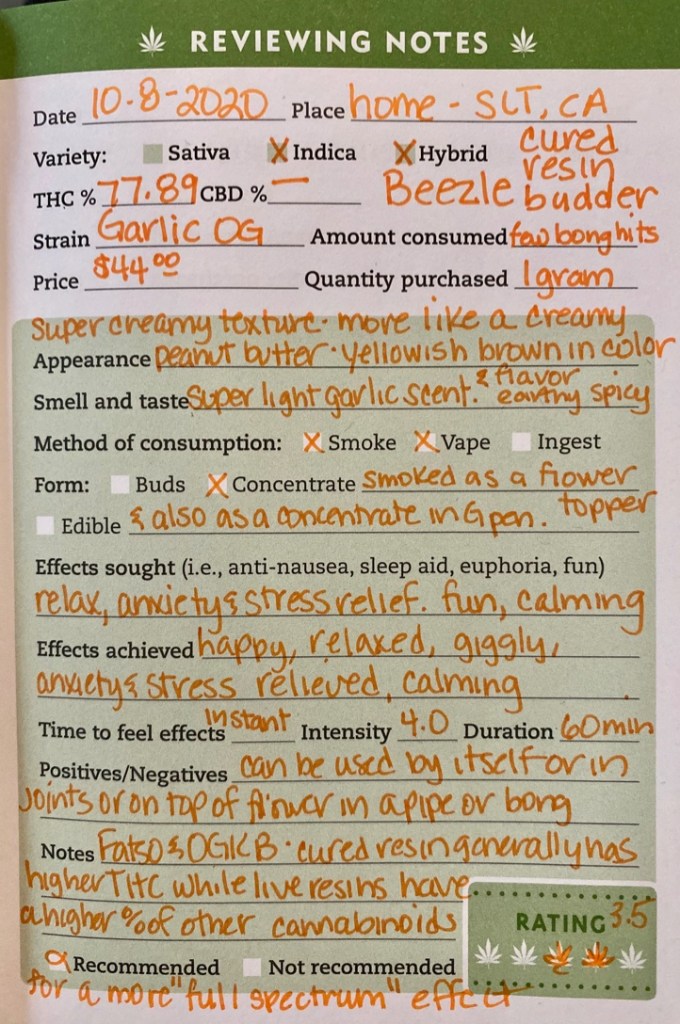 REVIEWING NOTES
Date 10-8-2020 Place home - SLT, CA
Variety: Sativa Indica Hybrid cured resin budder
THC % 77.89 CBD % — Beezle
Strain Garlic OG Amount consumed few bong hits
Price $44.00 Quantity purchased 1 gram
super creamy texture. more like a creamy
Appearance peanut butter. yellowish brown in color
Smell and taste super light garlic scent. & flavor earthy spicy
Method of consumption: Smoke Vape Ingest
Form: Buds Concentrate smoked as a flower topper
Edible & also as a concentrate in G pen.
Effects sought (i.e., anti-nausea, sleep aid, euphoria, fun)
relax, anxiety & stress relief. fun, calming
Effects achieved happy, relaxed, giggly,
anxiety & stress relieved, calming
Time to feel effects instant Intensity 4.0 Duration 60 min
Positives/Negatives can be used by itself or in
joints or on top of flower in a pipe or bong
Notes Fatso & OGKB. cured resin generally has
higher THC while live resins have
a higher % of other cannabinoids
RATING 3.5
Recommended Not recommended
for a more "full spectrum" effect